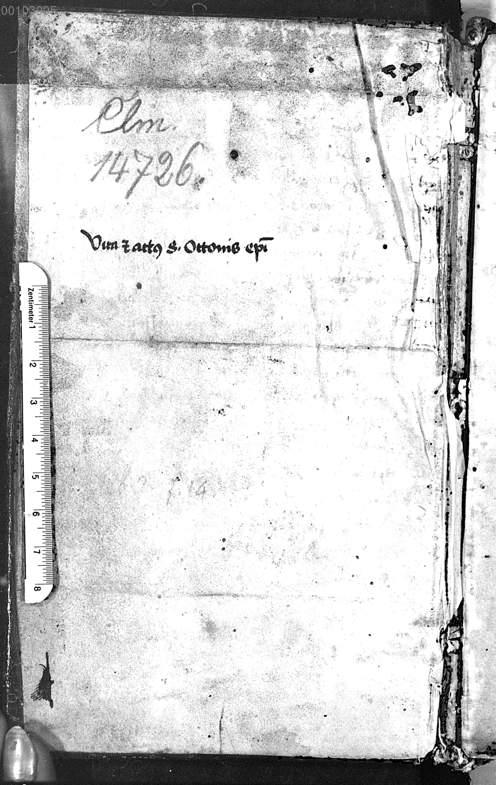 00103095
Clm.
14726.
Vita ⁊ actꝰ S. Ottonis epi̅
Zentimeter 1
2
3
4
5
6
7
8